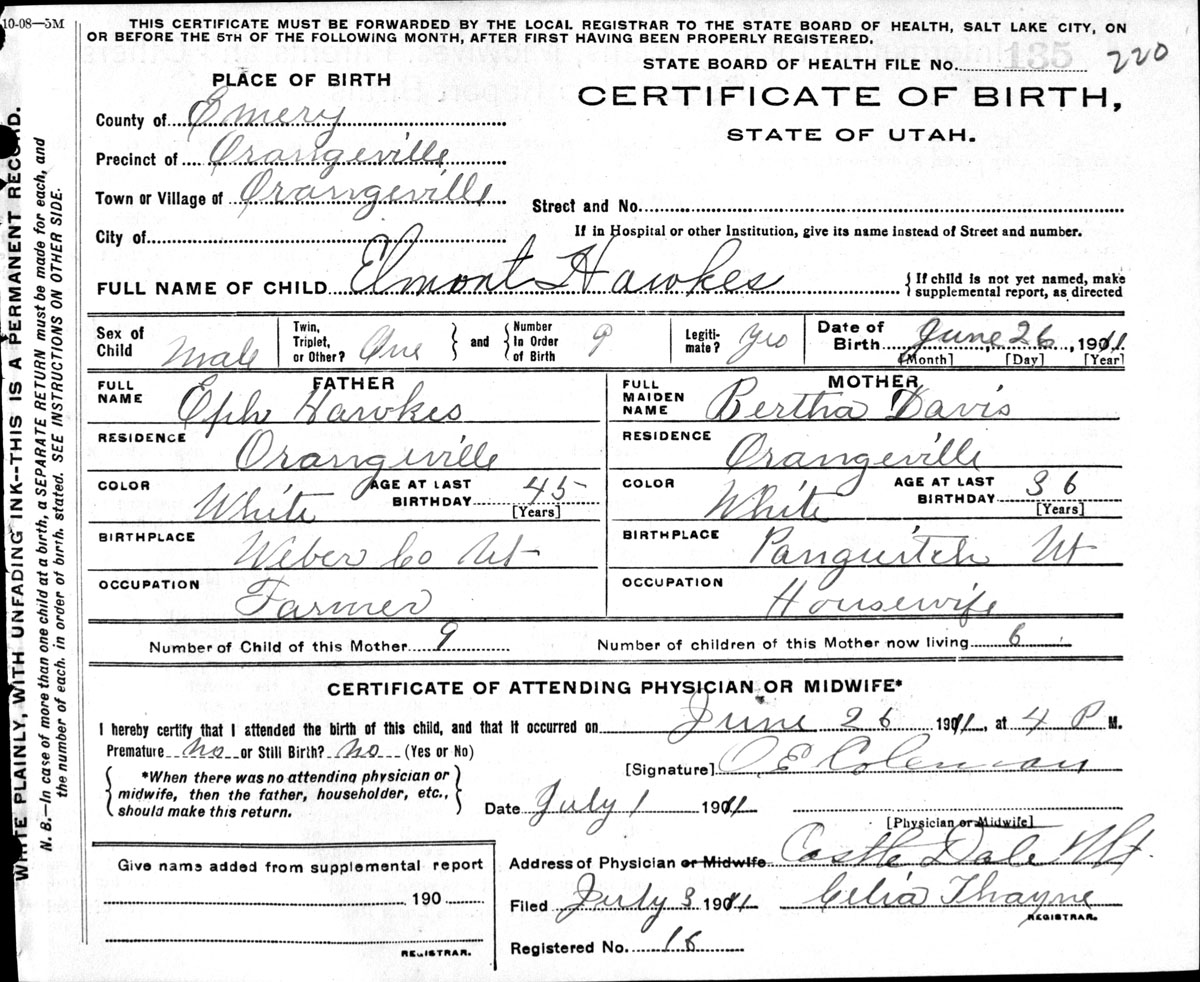 10-08—5M
THIS CERTIFICATE MUST BE FORWARDED BY THE LOCAL REGISTRAR TO THE STATE BOARD OF HEALTH, SALT LAKE CITY, ON
OR BEFORE THE 5TH OF THE FOLLOWING MONTH, AFTER FIRST HAVING BEEN PROPERLY REGISTERED.
STATE BOARD OF HEALTH FILE No. 135 220
PLACE OF BIRTH
CERTIFICATE OF BIRTH,
STATE OF UTAH.
County of Emery
Precinct of Orangeville
Town or Village of Orangeville
Street and No.
City of
If in Hospital or other Institution, give its name instead of Street and number.
FULL NAME OF CHILD Elmont Hawkes { If child is not yet named, make supplemental report, as directed
Sex of Child Male
Twin, Triplet, or Other? One } and { Number In Order of Birth 9
Legitimate? Yes
Date of Birth June 26, 1911
[Month] [Day] [Year]
FATHER
FULL NAME Eph Hawkes
RESIDENCE Orangeville
COLOR White AGE AT LAST BIRTHDAY 45 [Years]
BIRTHPLACE Weber Co Ut
OCCUPATION Farmer
MOTHER
FULL MAIDEN NAME Bertha Davis
RESIDENCE Orangeville
COLOR White AGE AT LAST BIRTHDAY 36 [Years]
BIRTHPLACE Panguitch Ut
OCCUPATION Housewife
Number of Child of this Mother 9 Number of children of this Mother now living 6
CERTIFICATE OF ATTENDING PHYSICIAN OR MIDWIFE*
I hereby certify that I attended the birth of this child, and that it occurred on June 26 1911, at 4 P M.
Premature no or Still Birth? no (Yes or No)
[Signature] O E Coleman
{ *When there was no attending physician or midwife, then the father, householder, etc., should make this return. }
Date July 1 1911
[Physician or Midwife]
Address of Physician or Midwife Castle Dale Ut.
Filed July 3 1911 Celia Thayne
REGISTRAR.
Registered No. 16
Give name added from supplemental report
190
REGISTRAR.
WRITE PLAINLY, WITH UNFADING INK--THIS IS A PERMANENT RECORD.
N. B.—In case of more than one child at a birth, a SEPARATE RETURN must be made for each, and
the number of each, in order of birth, stated. SEE INSTRUCTIONS ON OTHER SIDE.